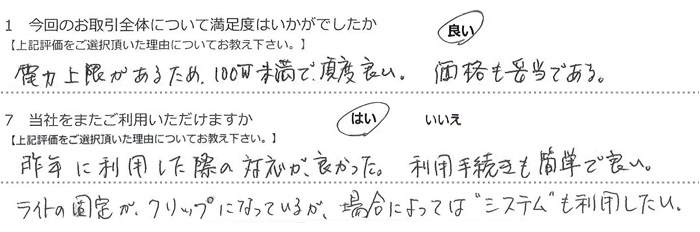 1 今回のお取引全体について満足度はいかがでしたか 良い
【上記評価をご選択頂いた理由についてお教え下さい。】
電力上限があるため、100W未満で、頂度良い。 価格も妥当である。
7 当社をまたご利用いただけますか はい いいえ
【上記評価をご選択頂いた理由についてお教え下さい。】
昨年に利用した際の対応が、良かった。 利用手続きも簡単で良い。
ライトの固定が、クリップになっているが、場合によっては"システム"も利用したい。